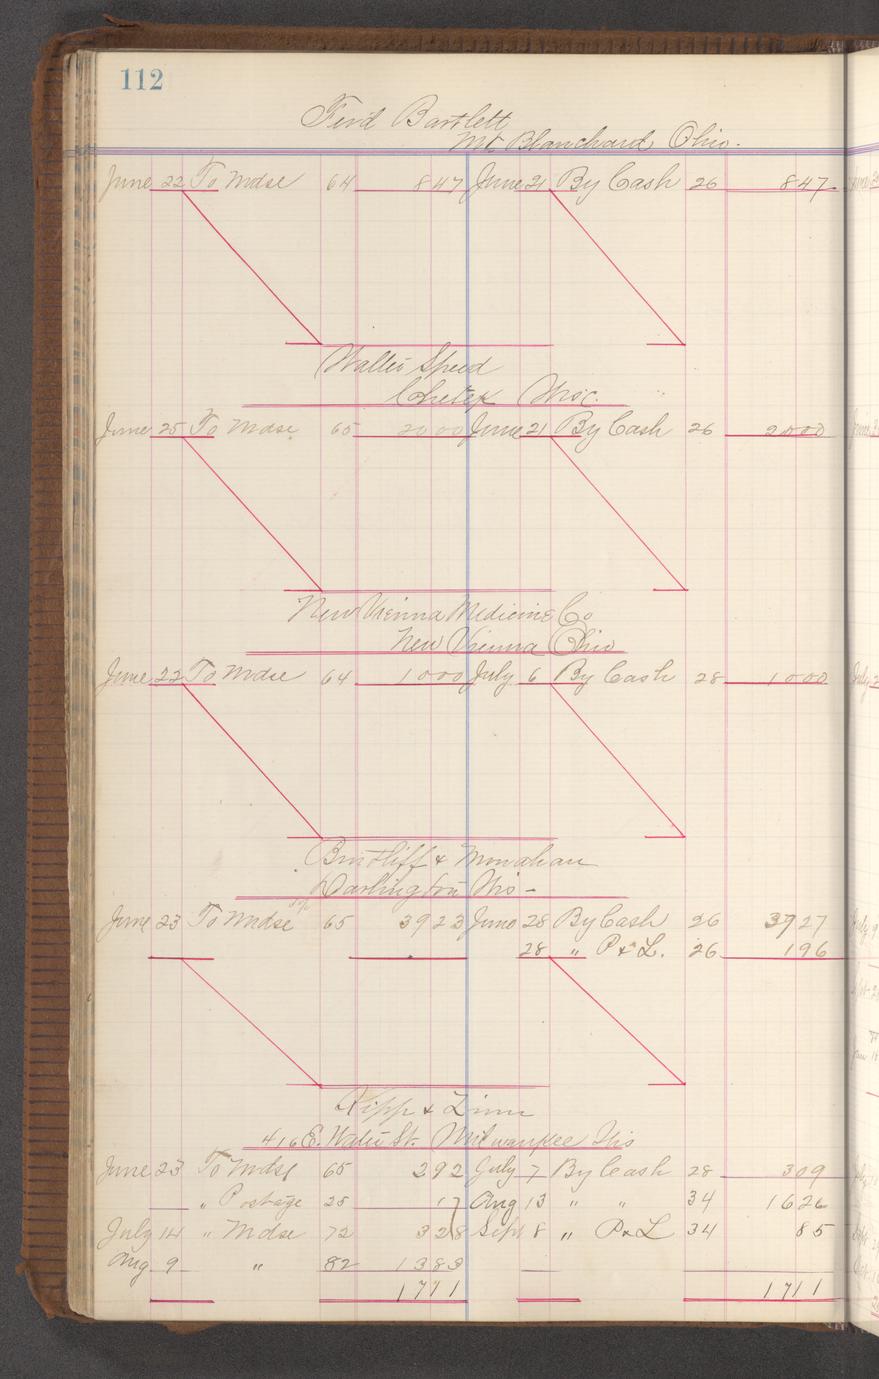 112
Ferd Bartlett
Mt Blanchard Ohio.
June 22 To Mdse 64 847 June 21 By Cash 26 847
Walter Speed
Chetek Wisc.
June 25 To Mdse 65 2000 June 21 By Cash 26 2000
New Vienna Medicine Co
New Vienna Ohio
June 22 To Mdse 64 1000 July 6 By Cash 28 1000
& Monahan
Darlington Wis -
June 23 To Mdse 65 3923 June 28 By Cash 26 3727
28 " P & L. 26 196
Kipp & Zinn
416 E. Water St. Milwaukee Wis
June 23 To Mdse 65 292 July 7 By Cash 28 309
" Postage 25 17 Aug 13 " " 34 1626
July 14 " Mdse 72 328 Sept 8 " P & L 34 85
Aug 9 " 82 1383
1771 1711